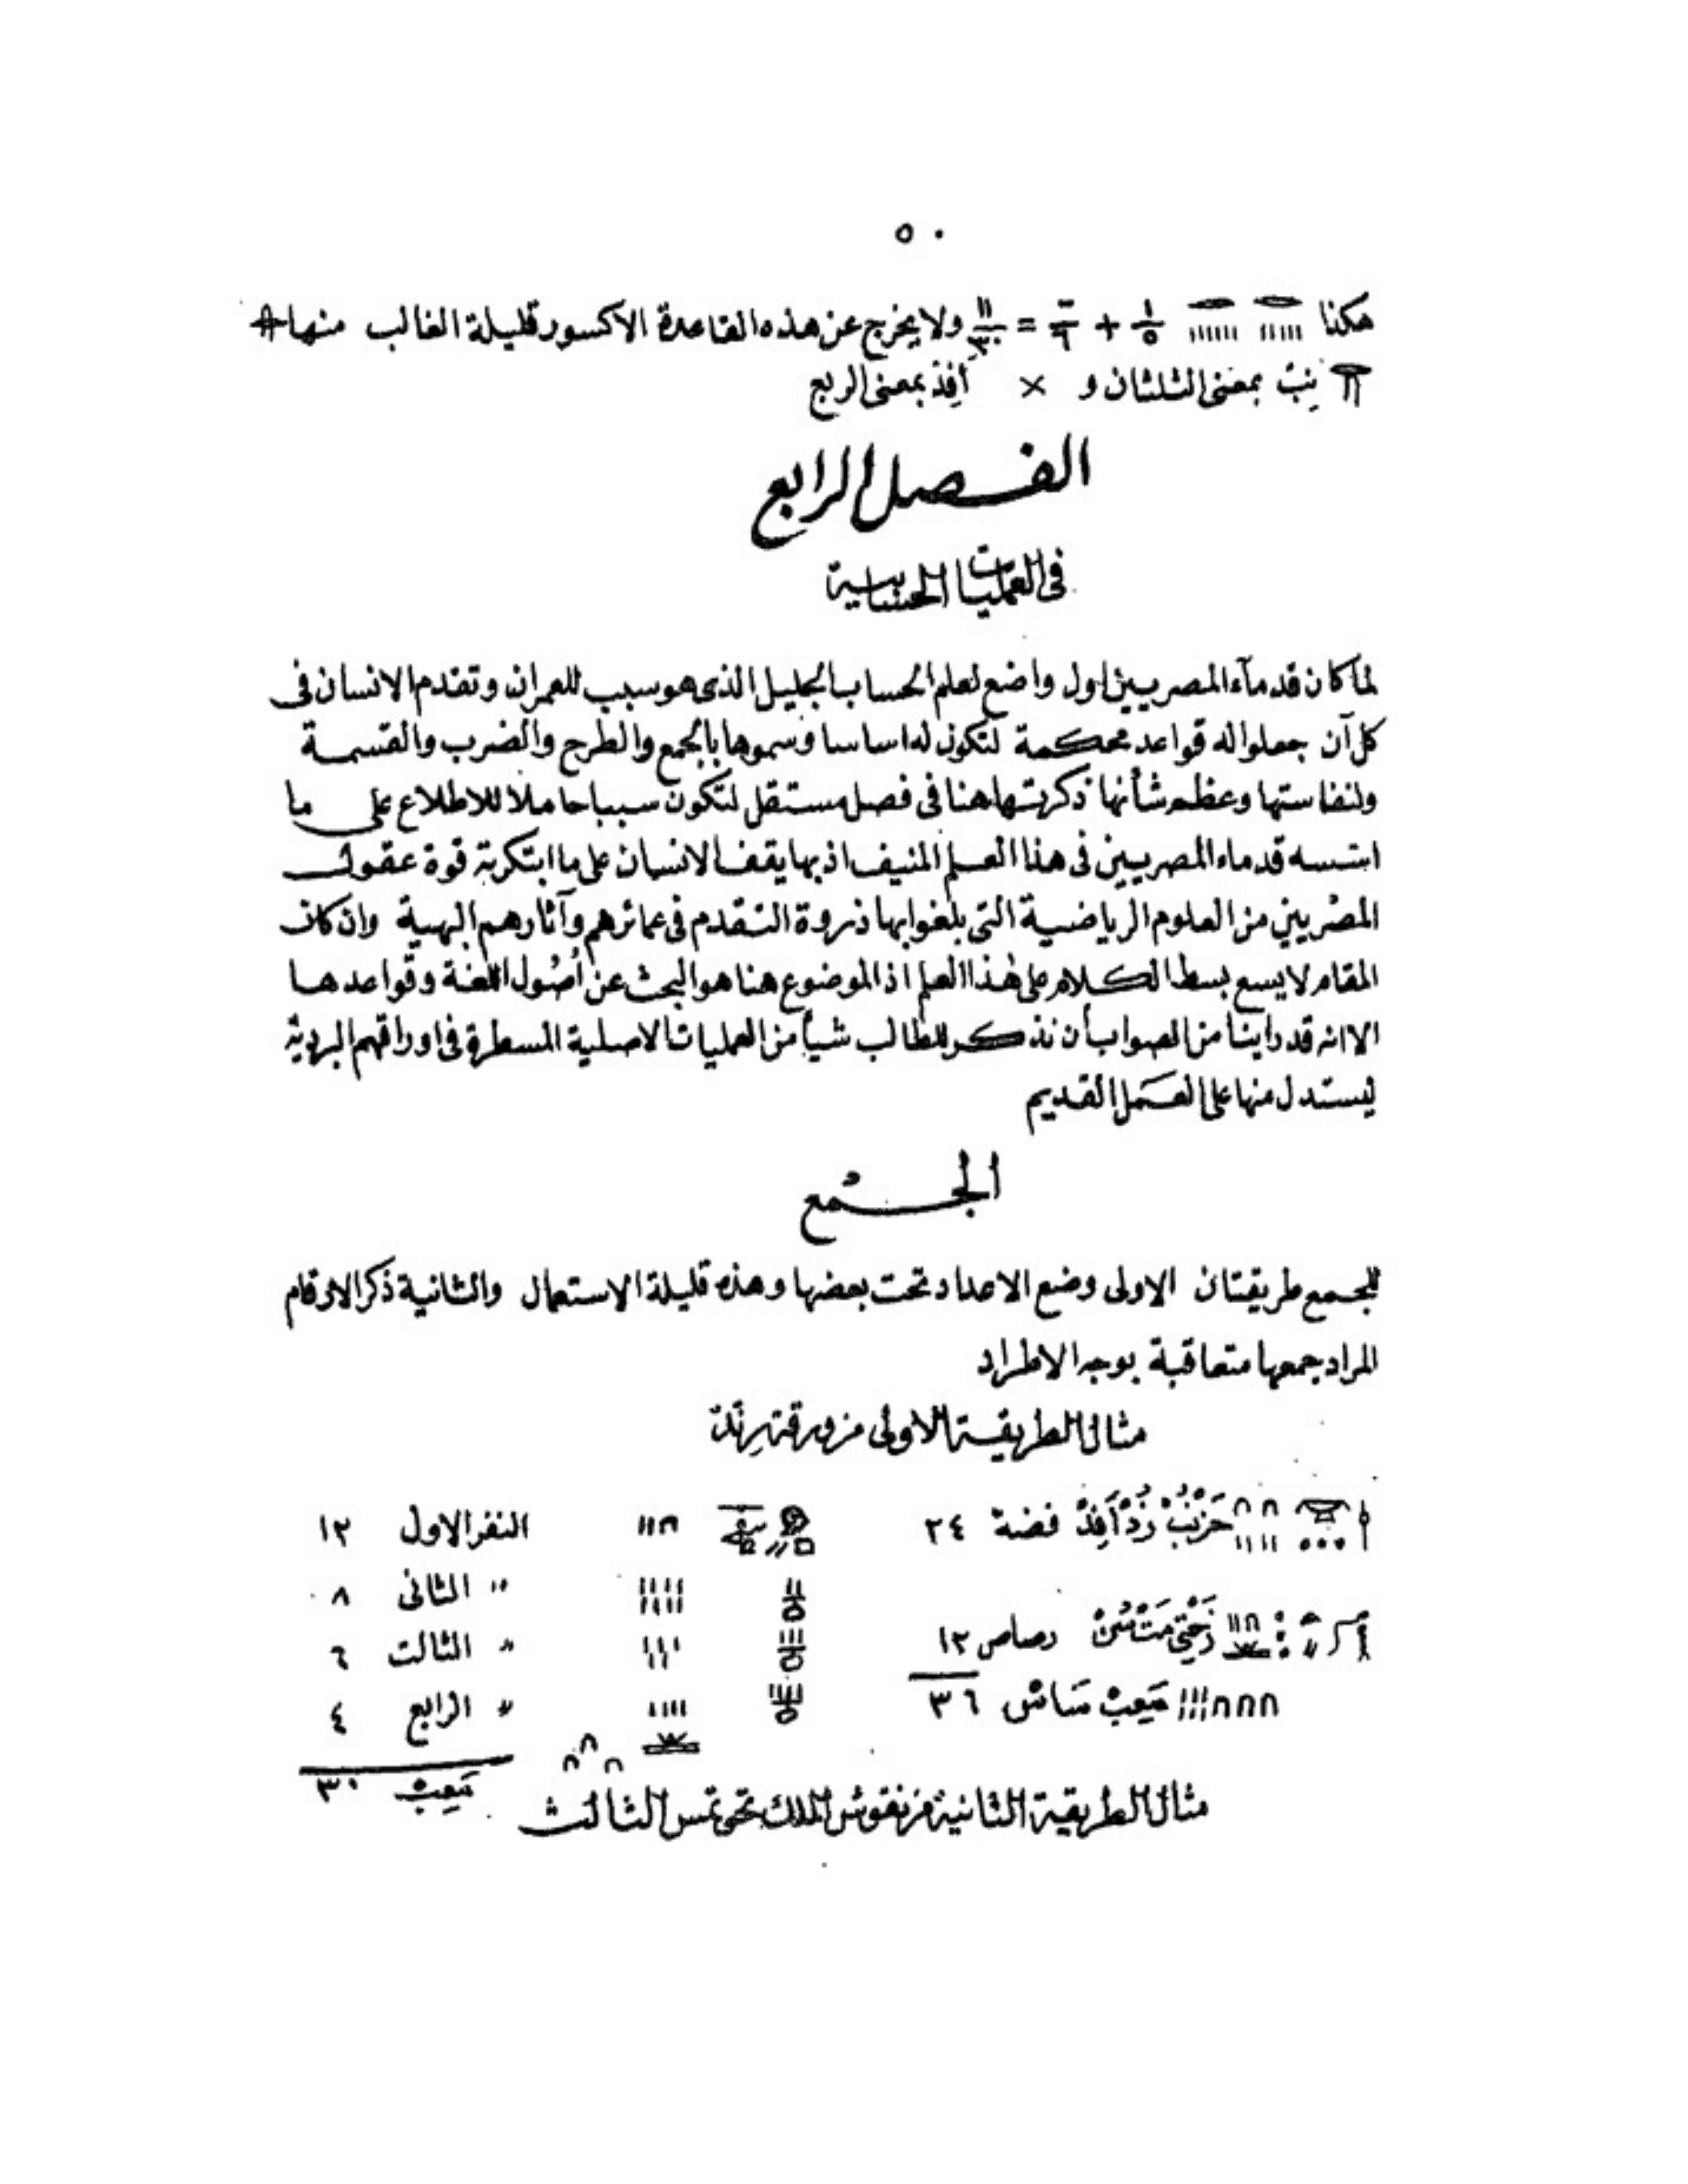 ٥٠
هكذا ١/٥ + ١/٦ = ١١/٣٠ ولا يخرج عن هذه القاعدة الا كسور قليلة الغالب منها
بمعنى الثلثان و × بمعنى الربع
الفصل الرابع
فى العمليات الحسابية
لما كان قدمآء المصريين اول واضع لعلم الحساب الجليل الذى هو سبب للعمران وتقدم الانسان فى
كل آن جعلوا له قواعد محكمة لتكون له اساسا وسموها بالجمع والطرح والضرب والقسمة
ولنفاستها وعظم شأنها ذكرتها هنا فى فصل مستقل لتكون سببا حاملا للاطلاع على ما
اسسه قدماء المصريين فى هذا العلم المنيف اذ بها يقف الانسان على ما ابتكرته قوة عقول
المصريين من العلوم الرياضية التى بلغوا بها ذروة التقدم فى عمائرهم وآثارهم البهية وان كان
المقام لا يسع بسط الكلام على هذا العلم اذ الموضوع هنا هو البحث عن أصول اللغة وقواعدها
الا انه قد راينا من الصواب أن نذكر للطالب شيأ من العمليات الاصلية المسطرة فى اوراقهم البردية
ليستدل منها على العمل القديم
الجمع
للجمع طريقتان الاولى وضع الاعداد تحت بعضها وهذه قليلة الاستعمال والثانية ذكر الارقام
المراد جمعها متعاقبة بوجه الاطراد
مثال الطريقة الاولى من ورقة رند
فضة ٢٤ النفر الاول ١٢
" الثانى ٨
رصاص ١٢ " الثالث ٦
٣٦ " الرابع ٤
٣٠
مثال الطريقة الثانية من نقوش الملك تحوتمس الثالث